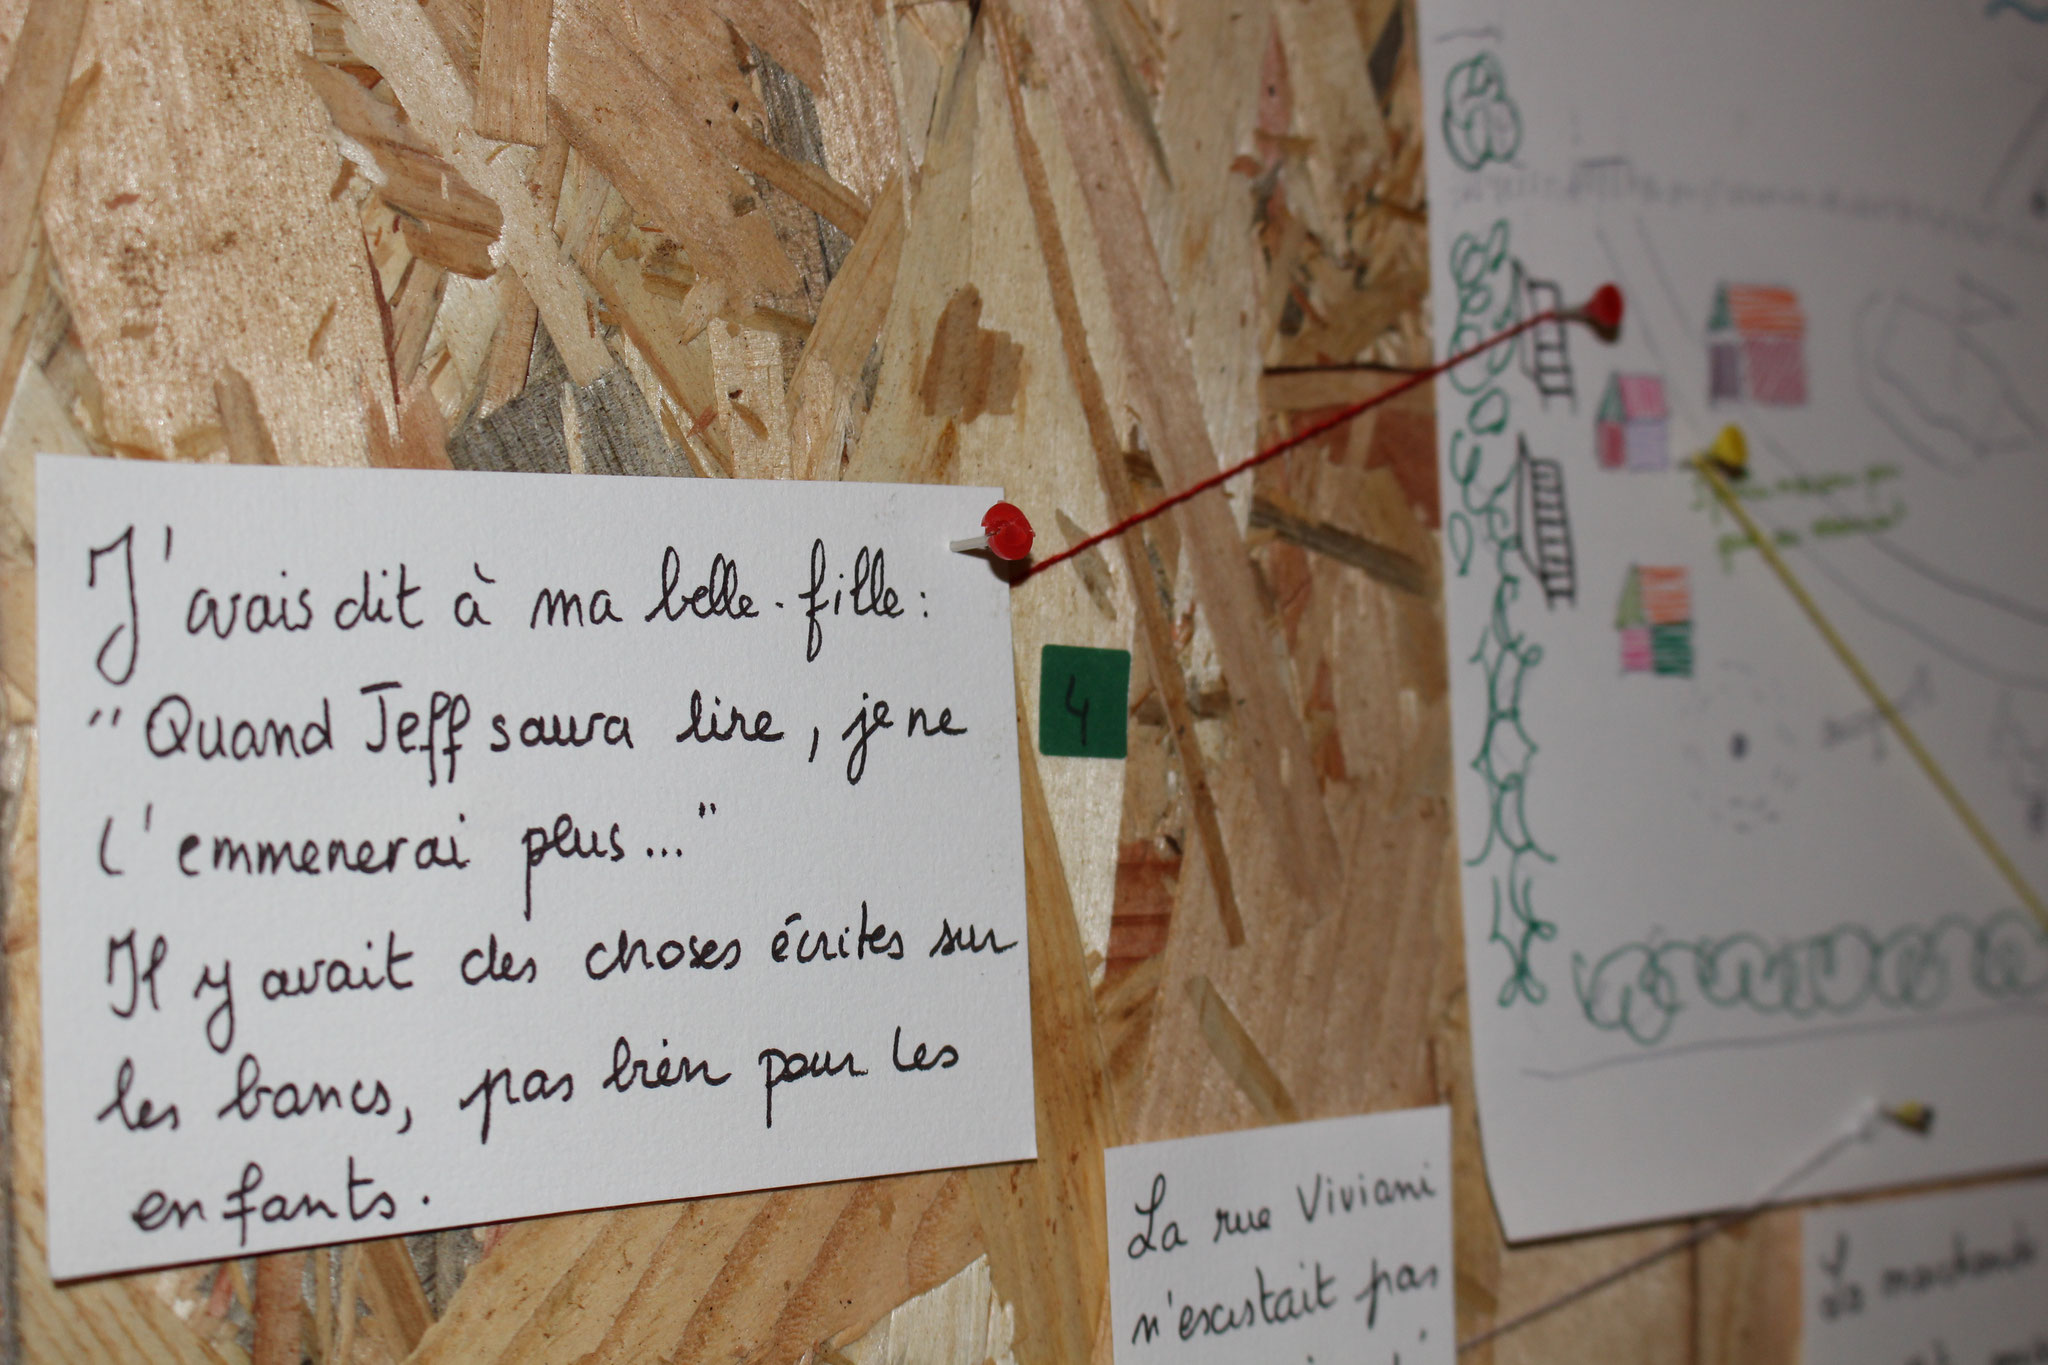 J'avais dit à ma belle-fille :
"Quand Jeff saura lire, je ne
l'emmenerai plus..."
Il y avait des choses écrites sur
les bancs, pas bien pour les
enfants.
4
La rue Viviani
n'existait pas